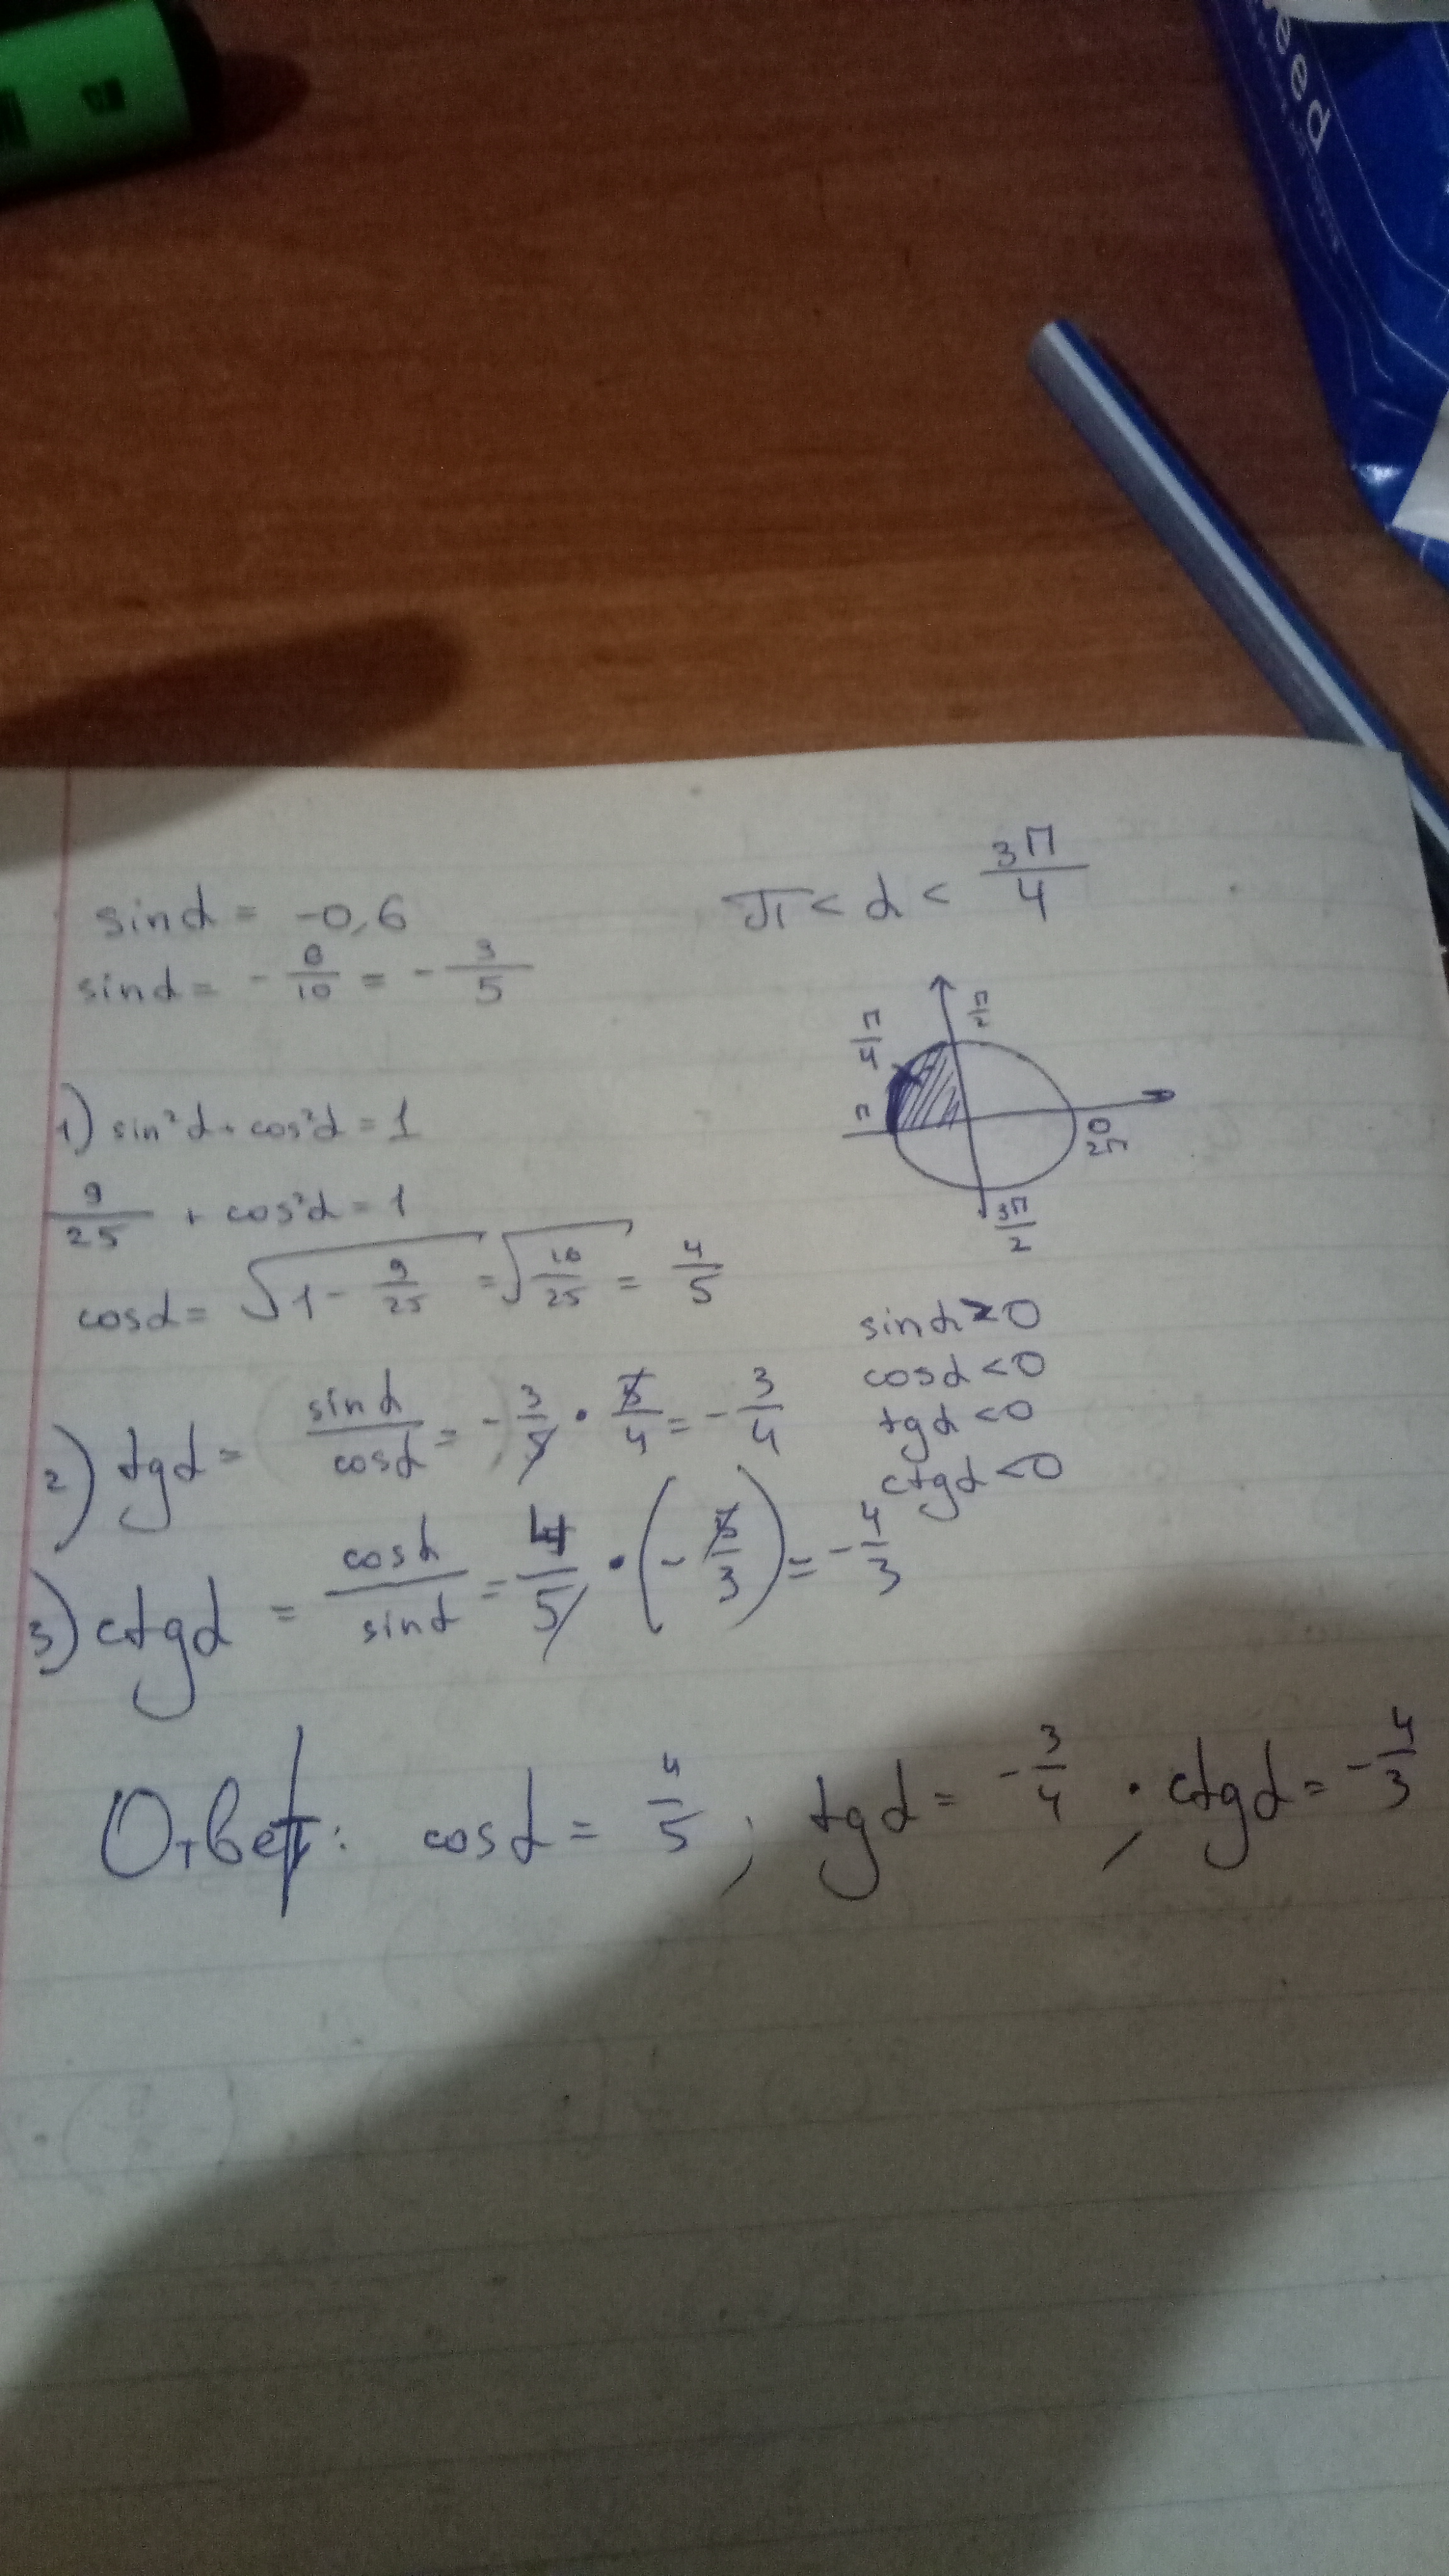 reed
sin α = -0,6
π < α < 3π/4
sin α = - 6/10 = - 3/5
π/2
π/4
π
0
2π
3π/2
1) sin²α + cos²α = 1
9/25 + cos²α = 1
cos α = √(1 - 9/25) = √(16/25) = 4/5
sin α > 0
cos α < 0
tg α < 0
ctg α < 0
2) tg α = sin α/cos α = - 3/5 · 5/4 = - 3/4
3) ctg α = cos α/sin α = 4/5 · (- 5/3) = - 4/3
Ответ: cos α = 4/5 ; tg α = - 3/4 ; ctg α = - 4/3